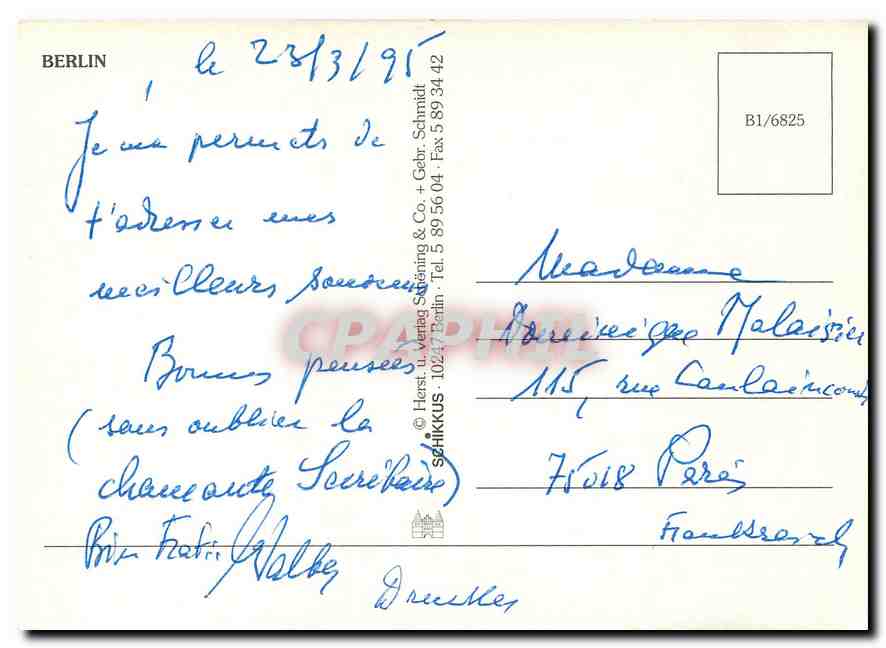 BERLIN
le 23/3/95
Je me permets de
t'adresser mes
meilleurs
Bonnes pensées
(sans oublier la
charmante Secrétaire)
© Herst. u. Verlag Schöning & Co. + Gebr. Schmidt
SCHIKKUS · 10247 Berlin · Tel. 5 89 56 04 · Fax 5 89 34 42
CPAPHIL
B1/6825
Madame
Dominique
115, rue Caulaincourt
75018 Paris
Frankreich